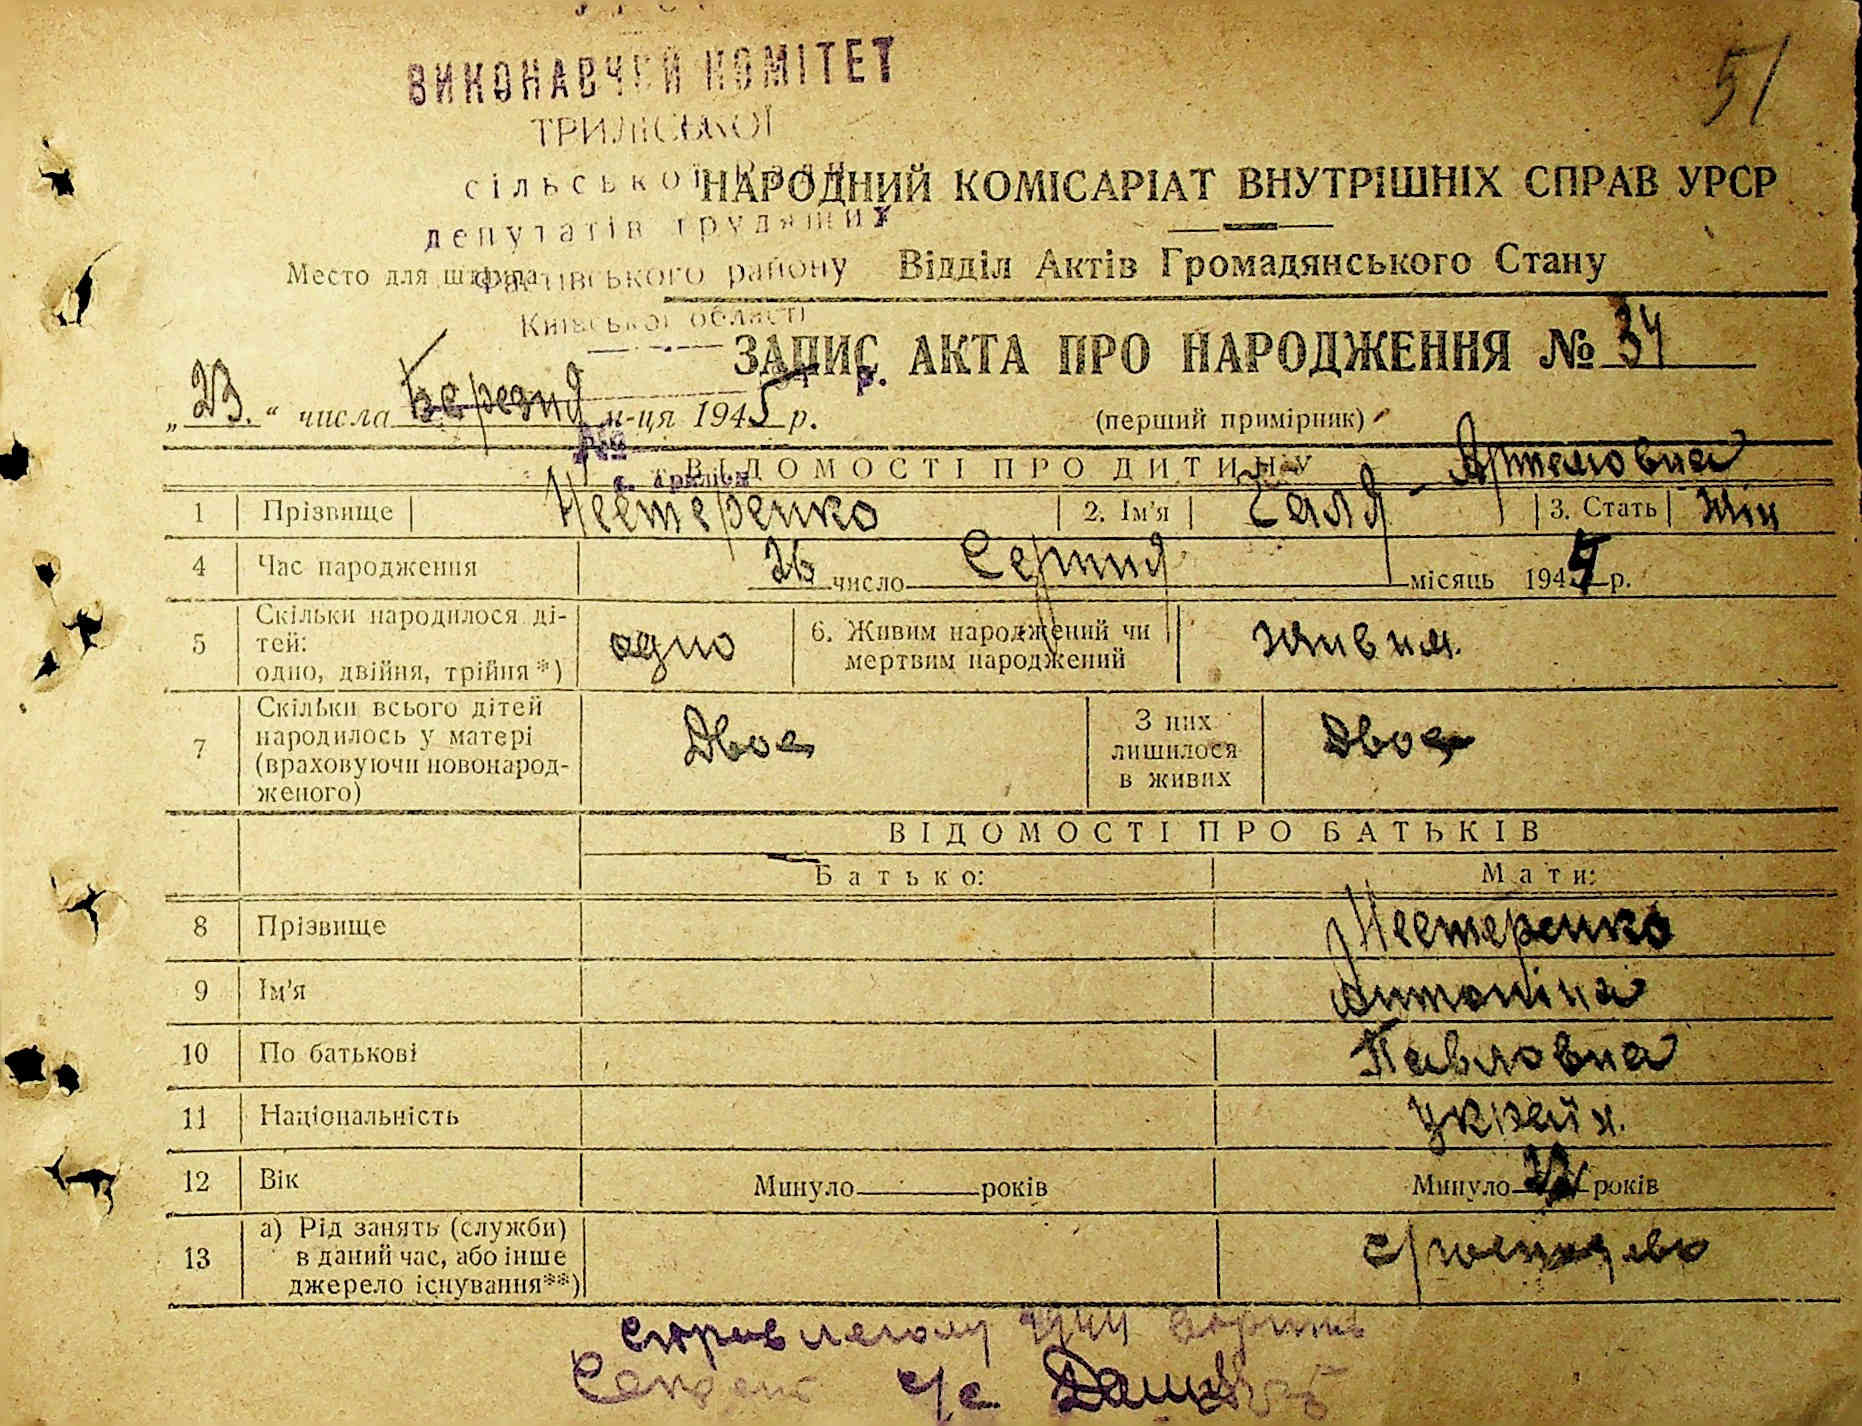 51
ВИКОНАВЧИЙ КОМІТЕТ
ТРИЛІСЬКОЇ
сільської Ради
депутатів трудящих
Фастівського району
Київської області
НАРОДНИЙ КОМІСАРІАТ ВНУТРІШНІХ СПРАВ УРСР
Место для штампа
Відділ Актів Громадянського Стану
ЗАПИС АКТА ПРО НАРОДЖЕННЯ № 34
„23.“ числа Березня м-ця 1945 р.
(перший примірник)
р.
№
с. Триліси
ВІДОМОСТІ ПРО ДИТИНУ
1 Прізвище Нестеренко 2. Ім'я Галя - Артемовна 3. Стать жін
4 Час народження 26 число Серпня місяць 1944 р.
5 Скільки народилося ді-
тей:
одно, двійня, трійня*) одно 6. Живим народжений чи
мертвим народжений живим.
7 Скільки всього дітей
народилось у матері
(враховуючи новонарод-
женого) Двоє З них
лишилося
в живих Двоє
ВІДОМОСТІ ПРО БАТЬКІВ
Батько: Мати:
8 Прізвище Нестеренко
9 Ім'я Антоніна
10 По батькові Павловна
11 Національність україн.
12 Вік Минуло років Минуло років
13 а) Рід занять (служби)
в даний час, або інше
джерело існування**)
1944 вірить
с/с